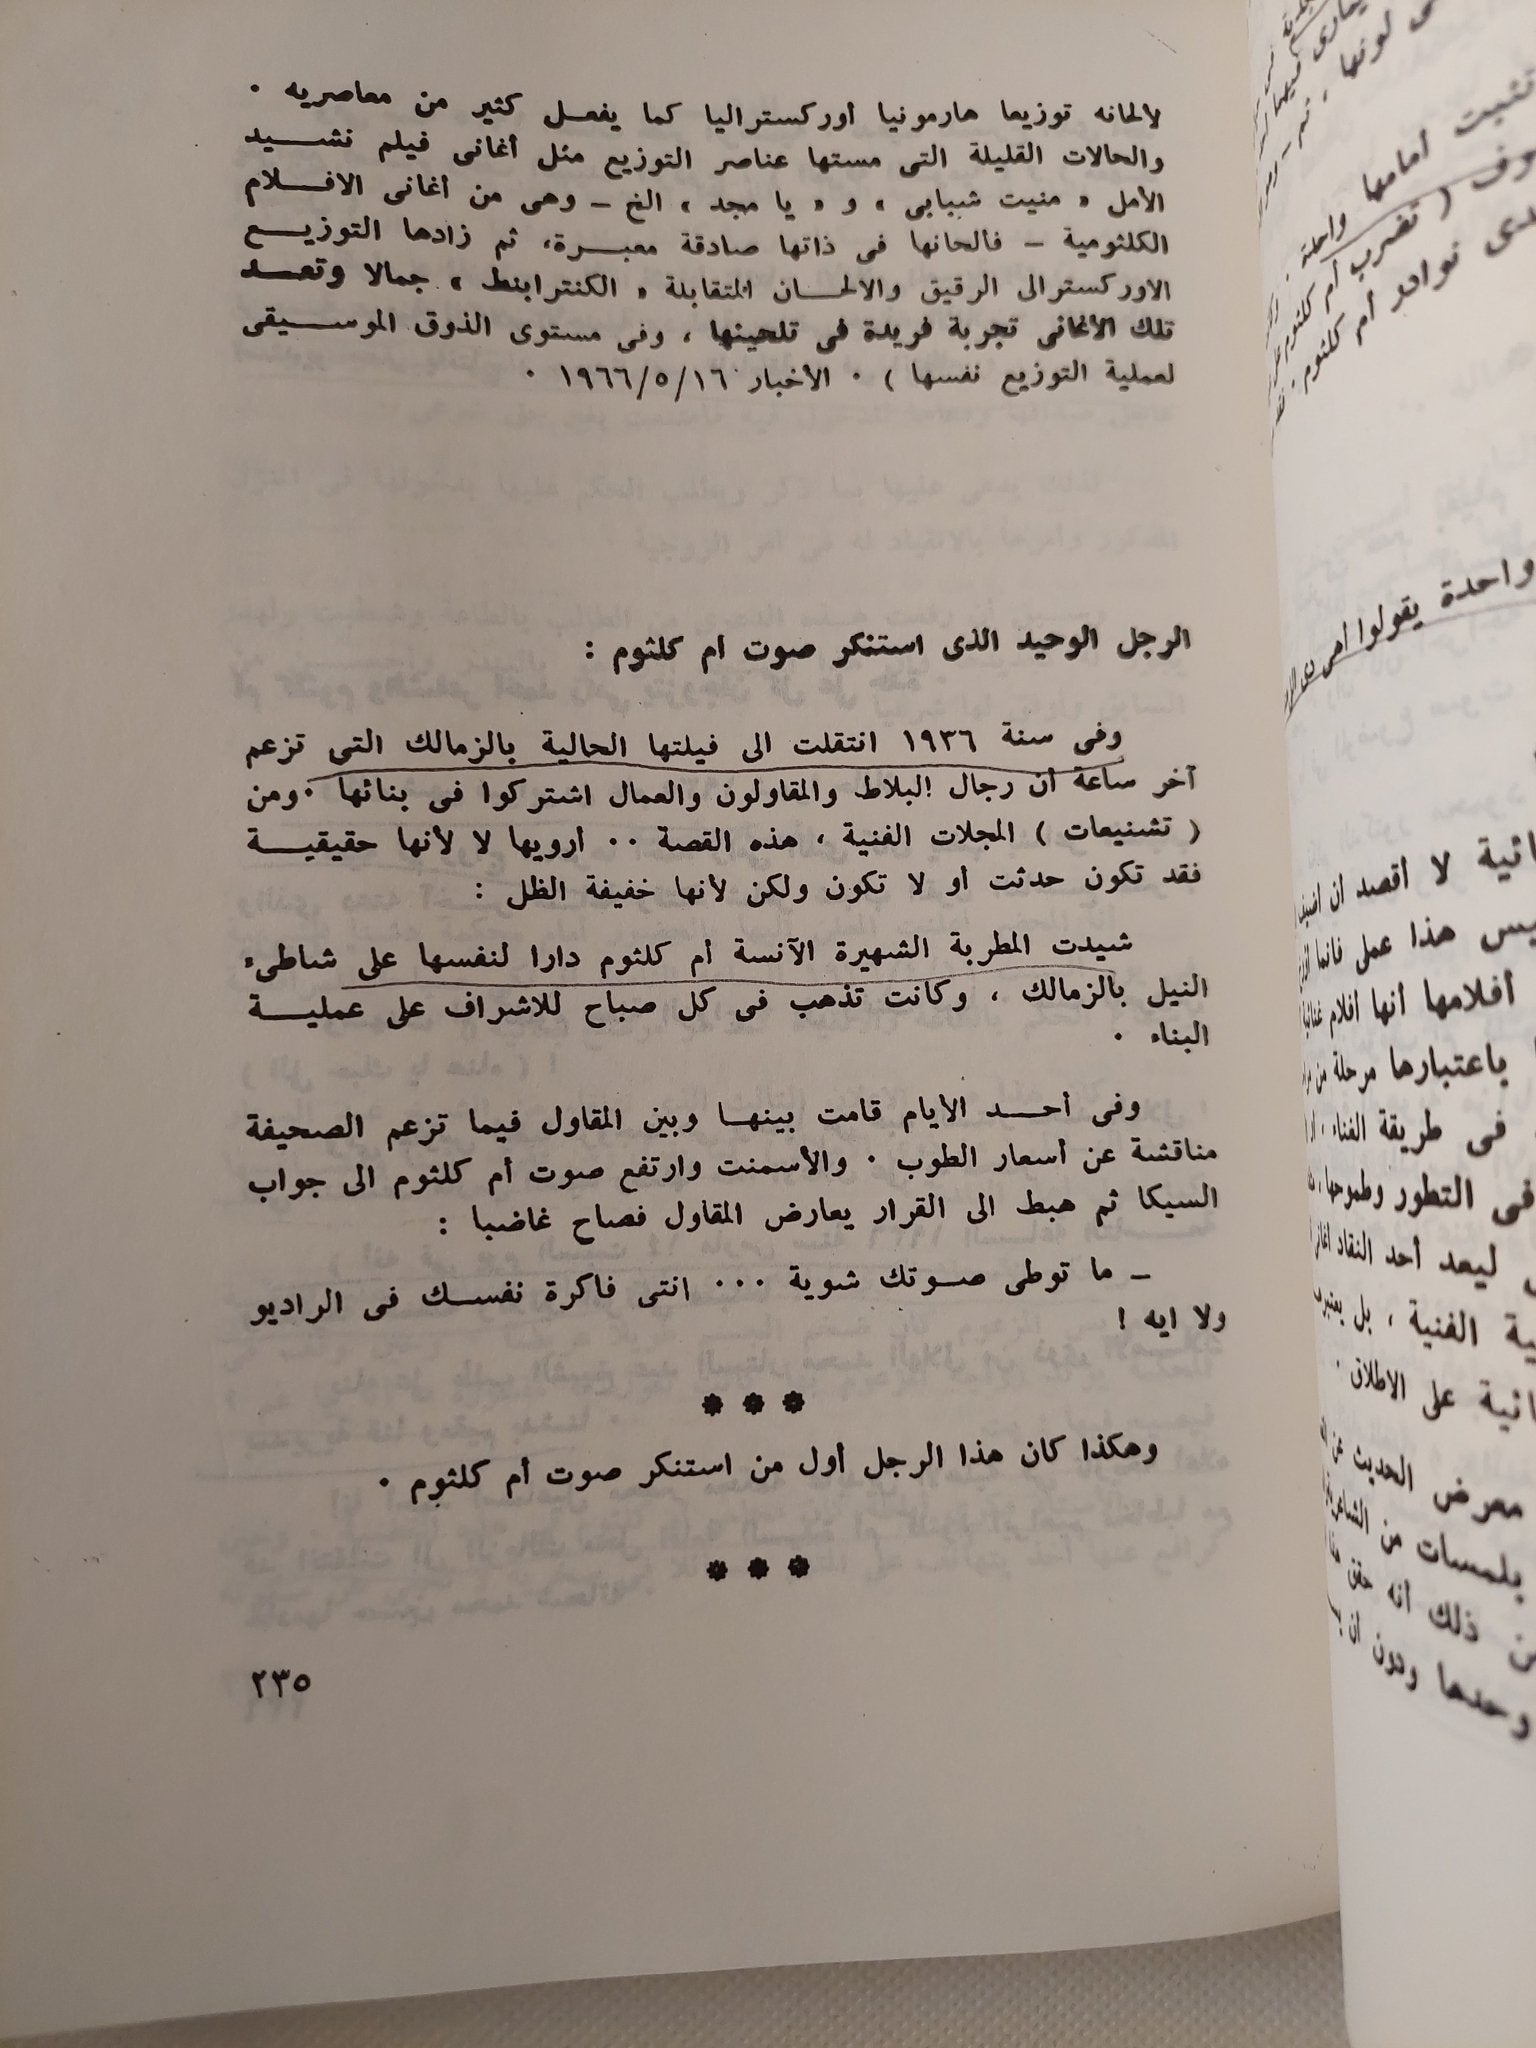 لألحانه توزيعا هارمونيا أوركستراليا كما يفعل كثير من معاصريه .
والحالات القليلة التى مستها عناصر التوزيع مثل أغانى فيلم نشيد
الأمل « منيت شبابى » و « يا مجد » الخ – وهى من أغانى الافلام
الكلثومية – فألحانها فى ذاتها صادقة معبرة، ثم زادها التوزيع
الاوركسترالى الرقيق والالحان المتقابلة « الكنترابنط » جمالا وتعد
تلك الأغانى تجربة فريدة فى تلحينها ، وفى مستوى الذوق الموسيقى
لعملية التوزيع نفسها ) . الأخبار ١٩٦٦/٥/١٦ .
الرجل الوحيد الذى استنكر صوت أم كلثوم :
وفى سنة ١٩٣٦ انتقلت الى فيلتها الحالية بالزمالك التى تزعم
آخر ساعة أن رجال البلاط والمقاولون والعمال اشتركوا فى بنائها . ومن
( تشنيعات ) المجلات الفنية ، هذه القصة .. أرويها لا لأنها حقيقية
فقد تكون حدثت أو لا تكون ولكن لأنها خفيفة الظل :
شيدت المطربة الشهيرة الآنسة أم كلثوم دارا لنفسها على شاطىء
النيل بالزمالك ، وكانت تذهب فى كل صباح للاشراف على عملية
البناء .
وفى أحد الأيام قامت بينها وبين المقاول فيما تزعم الصحيفة
مناقشة عن أسعار الطوب . والأسمنت وارتفع صوت أم كلثوم الى جواب
السيكا ثم هبط الى القرار يعارض المقاول فصاح غاضبا :
– ما توطى صوتك شوية ... انتى فاكرة نفسك فى الراديو
ولا ايه !
* * *
وهكذا كان هذا الرجل أول من استنكر صوت أم كلثوم .
* * *
٢٣٥
تثبت أمامها واحدة .
( تضرب أم كلثوم
نوادر أم كلثوم .
واحدة يقولوا أهى
لا أقصد ان اضيف
يس هذا عمل فانما
أفلامها أنها أفلام غنائية
باعتبارها مرحلة من
فى طريقة الغناء ،
فى التطور وطموحها ،
ليعد أحد النقاد
الفنية ، بل يعتبر
على الاطلاق .
معرض الحديث عن
بلمسات من
ذلك أنه حقق
وحدها ودون أن